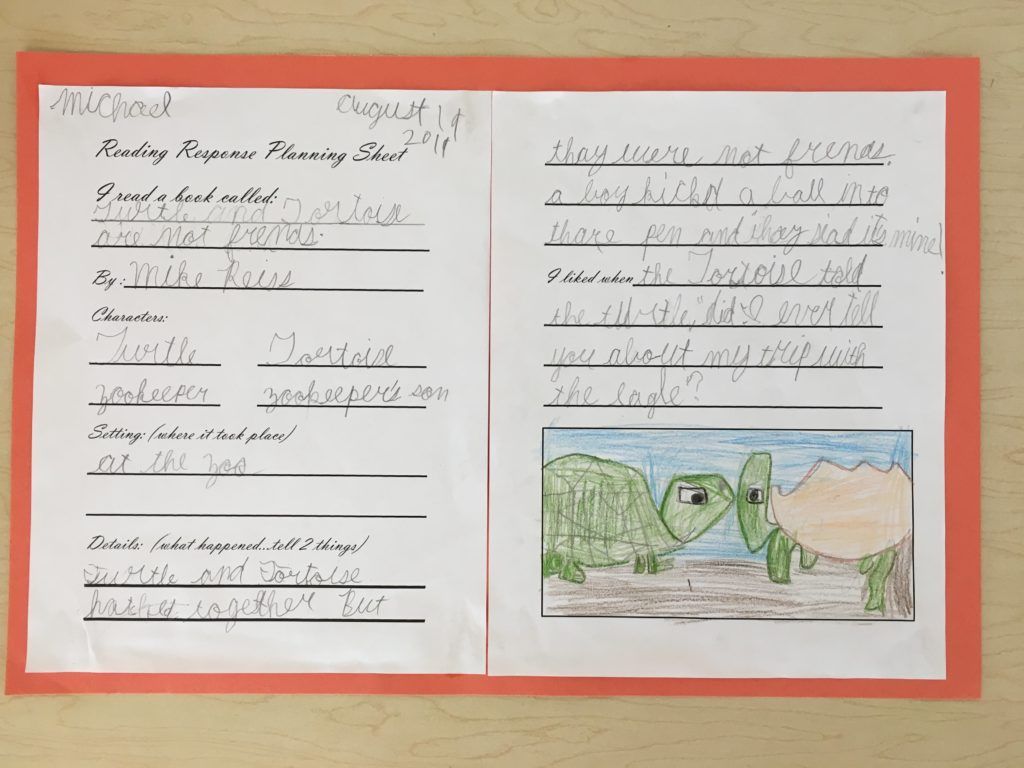 Michael
august 19
2019
Reading Response Planning Sheet
I read a book called:
Turtle and Tortoise
are not frends.
By: Mike Reiss
Characters:
Turtle Tortoise
zookeeper zookeeper's son
Setting: (where it took place)
at the zoo
Details: (what happened...tell 2 things)
Turtle and Tortoise
together But
thay were not frends.
a boy kickd a ball into
thare pen and thay siad its mine!
I liked when the Tortoise told
the turtle, "did I ever tell
you about my trip with
the eagle"?